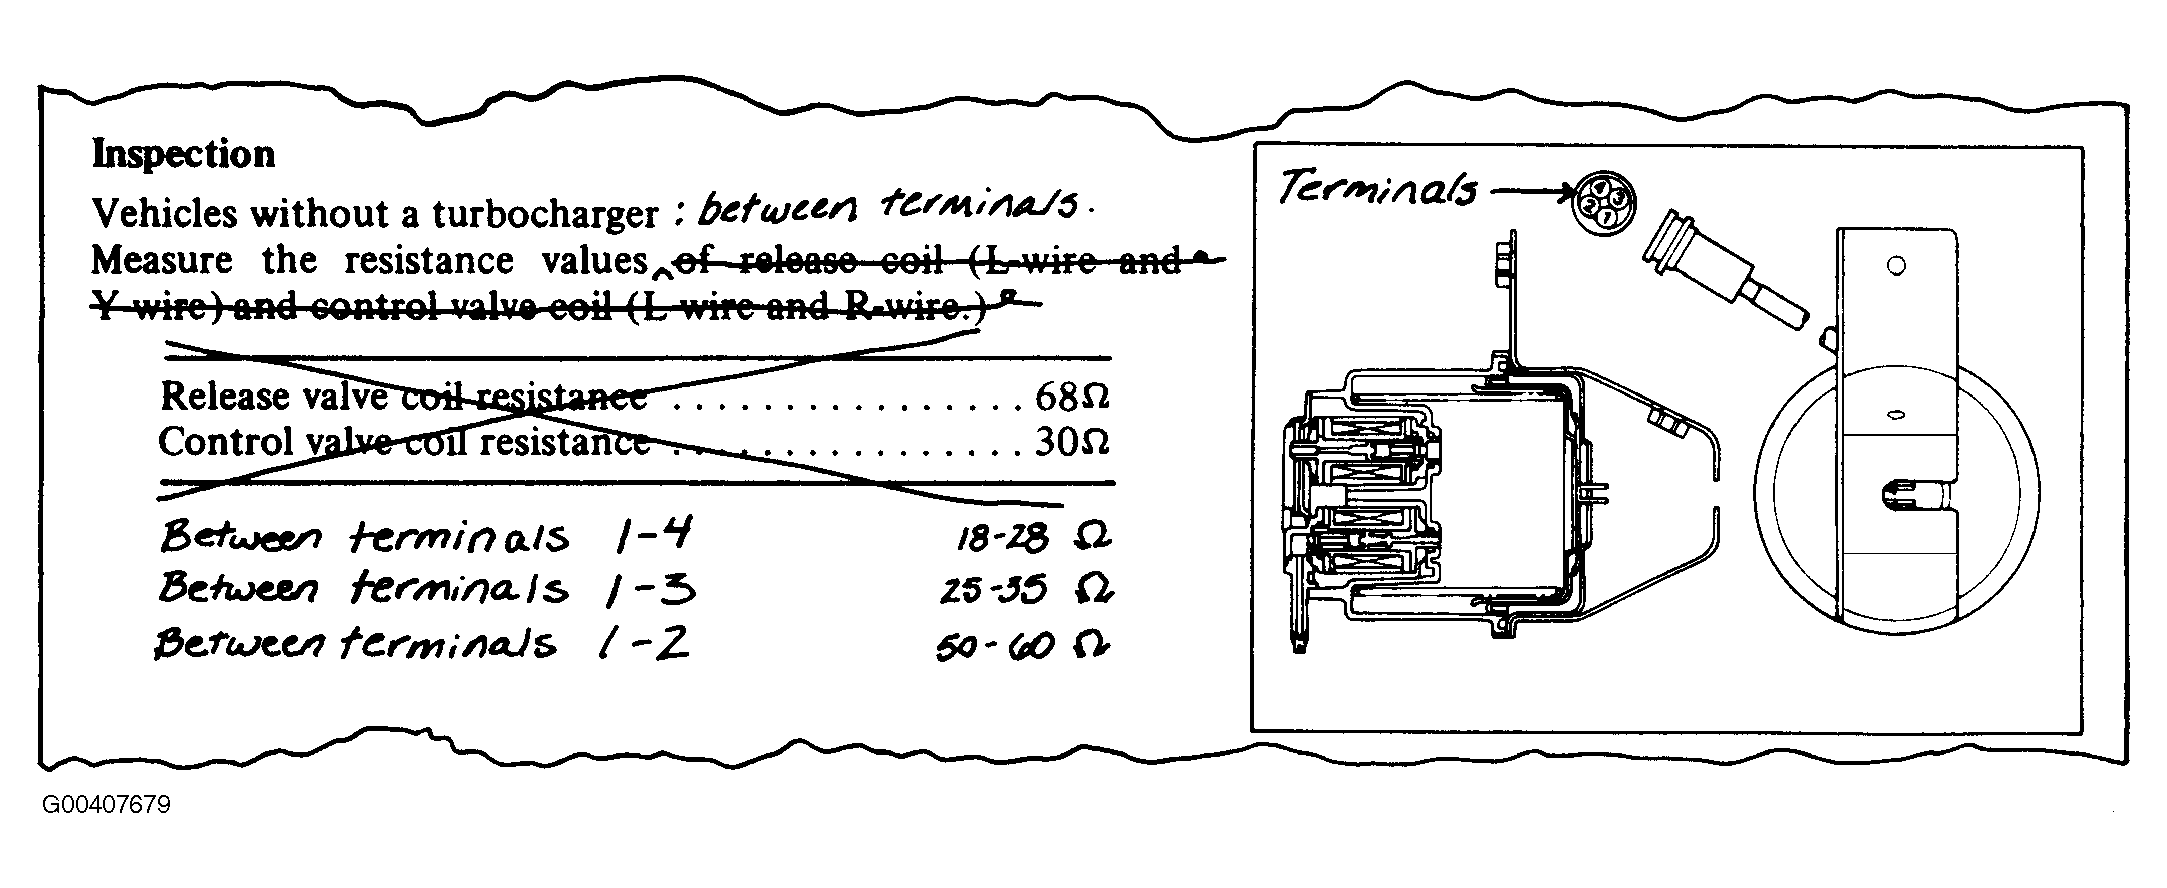 Inspection
Vehicles without a turbocharger : between terminals.
Measure the resistance values ^ of release coil (L-wire and
Y-wire) and control valve coil (L-wire and R-wire.)
Release valve coil resistance ................ 68Ω
Control valve coil resistance ................ 30Ω
Between terminals 1-4 18-28 Ω
Between terminals 1-3 25-35 Ω
Between terminals 1-2 50-60 Ω
Terminals
4
3
2
1
G00407679